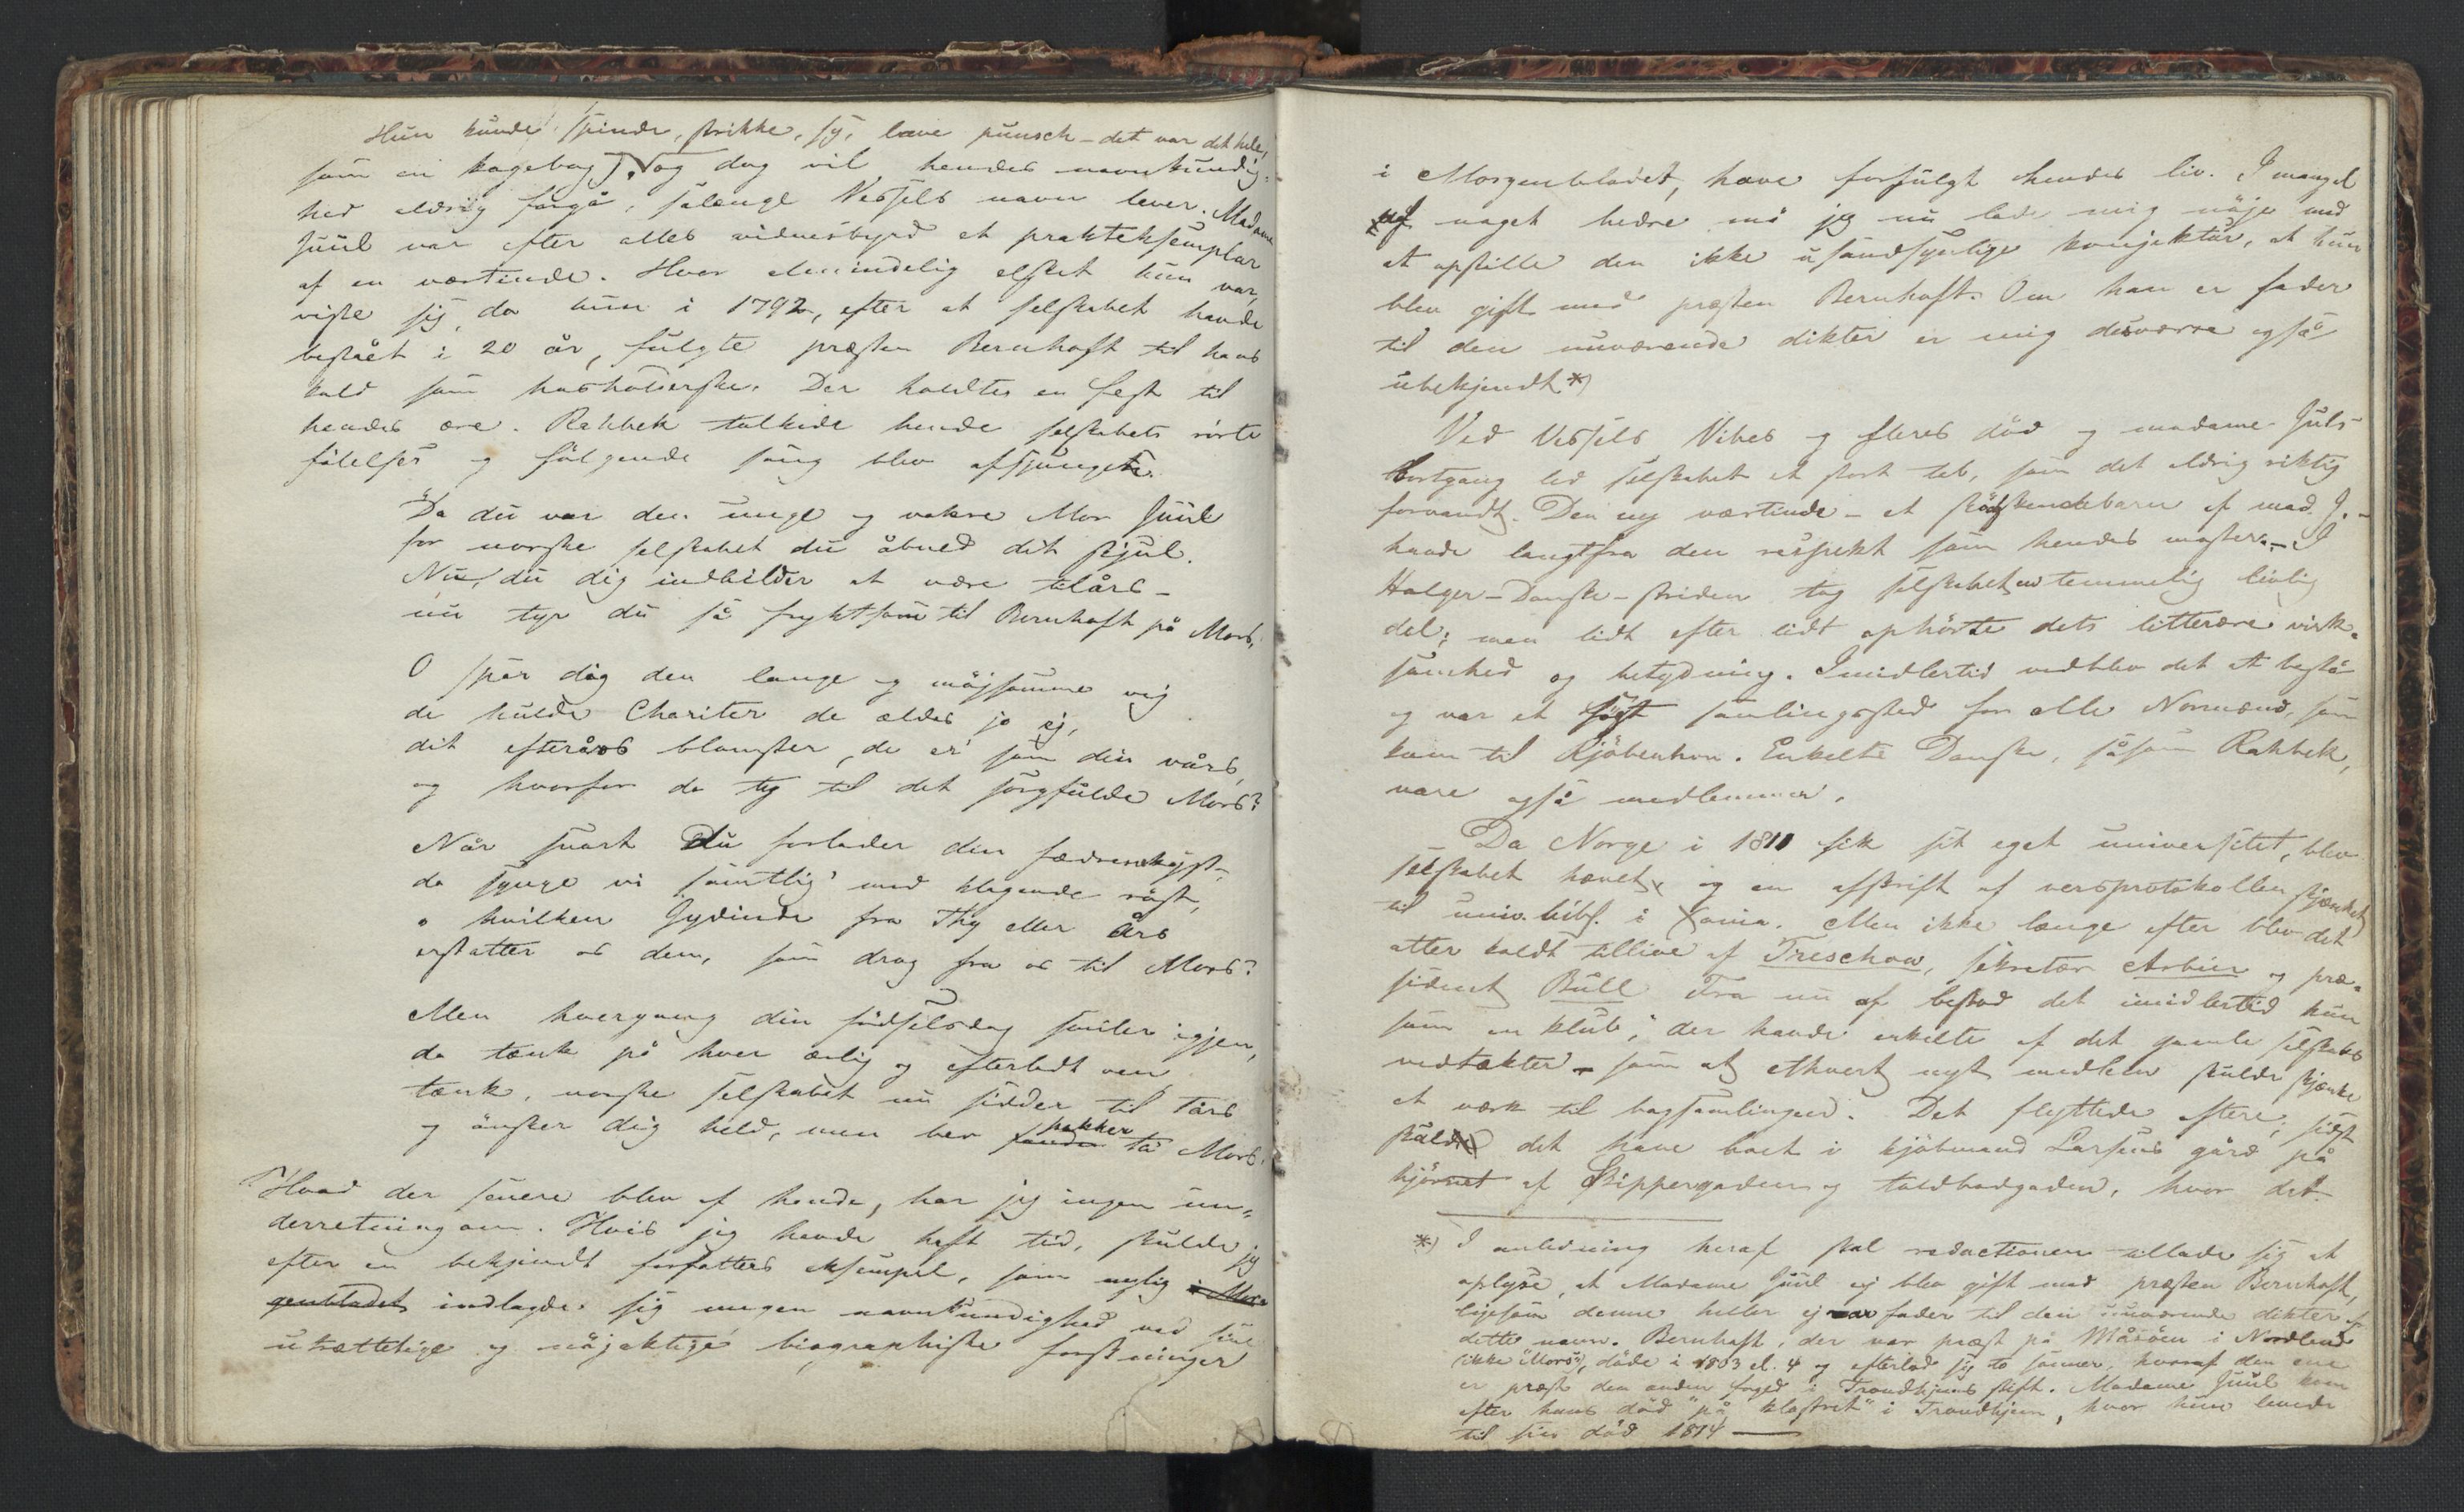 Hun kunde spinde, strikke, sy, lave punsch – det var det hele,
som en kagebag), og dog vil hendes navnkundig-
hed aldrig forgå, sålænge Vessels navn lever. Madame
Juul var efter alles vidnesbyrd et prakteksemplar
af en værtinde. Hvor almindelig elsket hun var,
viste sig, da hun i 1792, efter at selskabet havde
bestået i 20 år, fulgte presten Bernhoft til hans
kald som husholderske. Der holdtes en fest til
hendes ære. Rahbek tolkede hende selskabets rørte
følelser og følgende sang blev afsjunget:
Da du var den unge og vakre Mor Juul
for norske selskabet du åbned dit skjul.
Nu, du dig indbilder at være tilårs –
nu tyr du så fryktsom til Bernhoft på Mors.
O spar dog den lange og møjsomme vej
de hulde Chariter de ældes jo ej,
dit efterårs blomster, de er som din vårs,
og hvorfor da ty til det sorgfulde Mors?
Når snart du forlader din fædrenekyst,
da synge vi samtlig' med klagende røst,
o hvilken Gydinde fra Thy eller Års
erstatter os dem, som drog fra os til Mors?
Men hvergang din fødselsdag smiler igjen,
da tænk på hver ærlig og efterladt ven
tænk, norske selskabet nu sidder til Tårs
og ønsker dig held, men ber fanden pokker ta Mors.
Hvad der senere blev af hende, har jeg ingen un-
derretning om. Hvis jeg havde haft tid, skulde jeg
efter en bekjendt forfatters eksempel, som nylig i Mor-
genbladet indlagde sig megen navnkundighed ved sine
utrættelige og nøjaktige biographiske forskninger
i Morgenbladet, have forfulgt hendes liv. I mangel
af noget bedre må jeg nu lade mig nøje med
at opstille den ikke usandsynlige konjektur, at hun
blev gift med presten Bernhoft. Om han er fader
til den nuværende dikter er mig desværre også
ubekjendt *)
Ved Vessels Vibes og fleres død og madame Juls
bortgang led selskabet et stort tab, som det aldrig riktig
forvandt. Den ny værtinde – et sødskendebarn af mad. J. –
havde langtfra den respekt som hendes moster. – I
Holger-Danske-striden tog selskabet en temmelig livlig
del; men lidt efter lidt ophørte dets litterære virk-
somhed og betydning. Imidlertid vedblev det at bestå
og var et søgt samlingssted for alle Normænd, som
kom til Kjøbenhavn. Enkelte Danske, såsom Rahbek,
vare også medlemmer.
Da Norge i 1811 fik sit eget universitet, blev
selskabet hævet, og en afskrift af versprotokollen skjænket
til univ. bibl. i Xania. Men ikke længe efter blev det
atter kaldt tillive af Treschow, sekretær Arbien og præ-
sident Bull. Fra nu af bestod det imidlertid kun
som en klub, der havde enkelte af det gamle selskabs
vedtækter – som at ethvert nyt medlem skulde skjænke
et værk til bogsamlingen. Det flyttede oftere; sidst
skulde det have boet i kjøbmand Larsens gård på
hjørnet af Skippergaden og toldbodgaden, hvor det
*) I anledning heraf skal redactionen tillade sig at
oplyse, at Madame Juul ej blev gift med presten Bernhoft,
ligesom denne heller ej var fader til den nuværende dikter af
dette navn. Bernhoft, der var prest på Måsøen i Nordland
(ikke "Mors"), døde i 1803 el. 4 og efterlod sig to sønner, hvoraf den ene
er prest den anden foged i Trondhjems stift. Madame Juul kom
efter hans død "på klostret" i Trondhjem, hvor hun levede
til sin død 1814 —